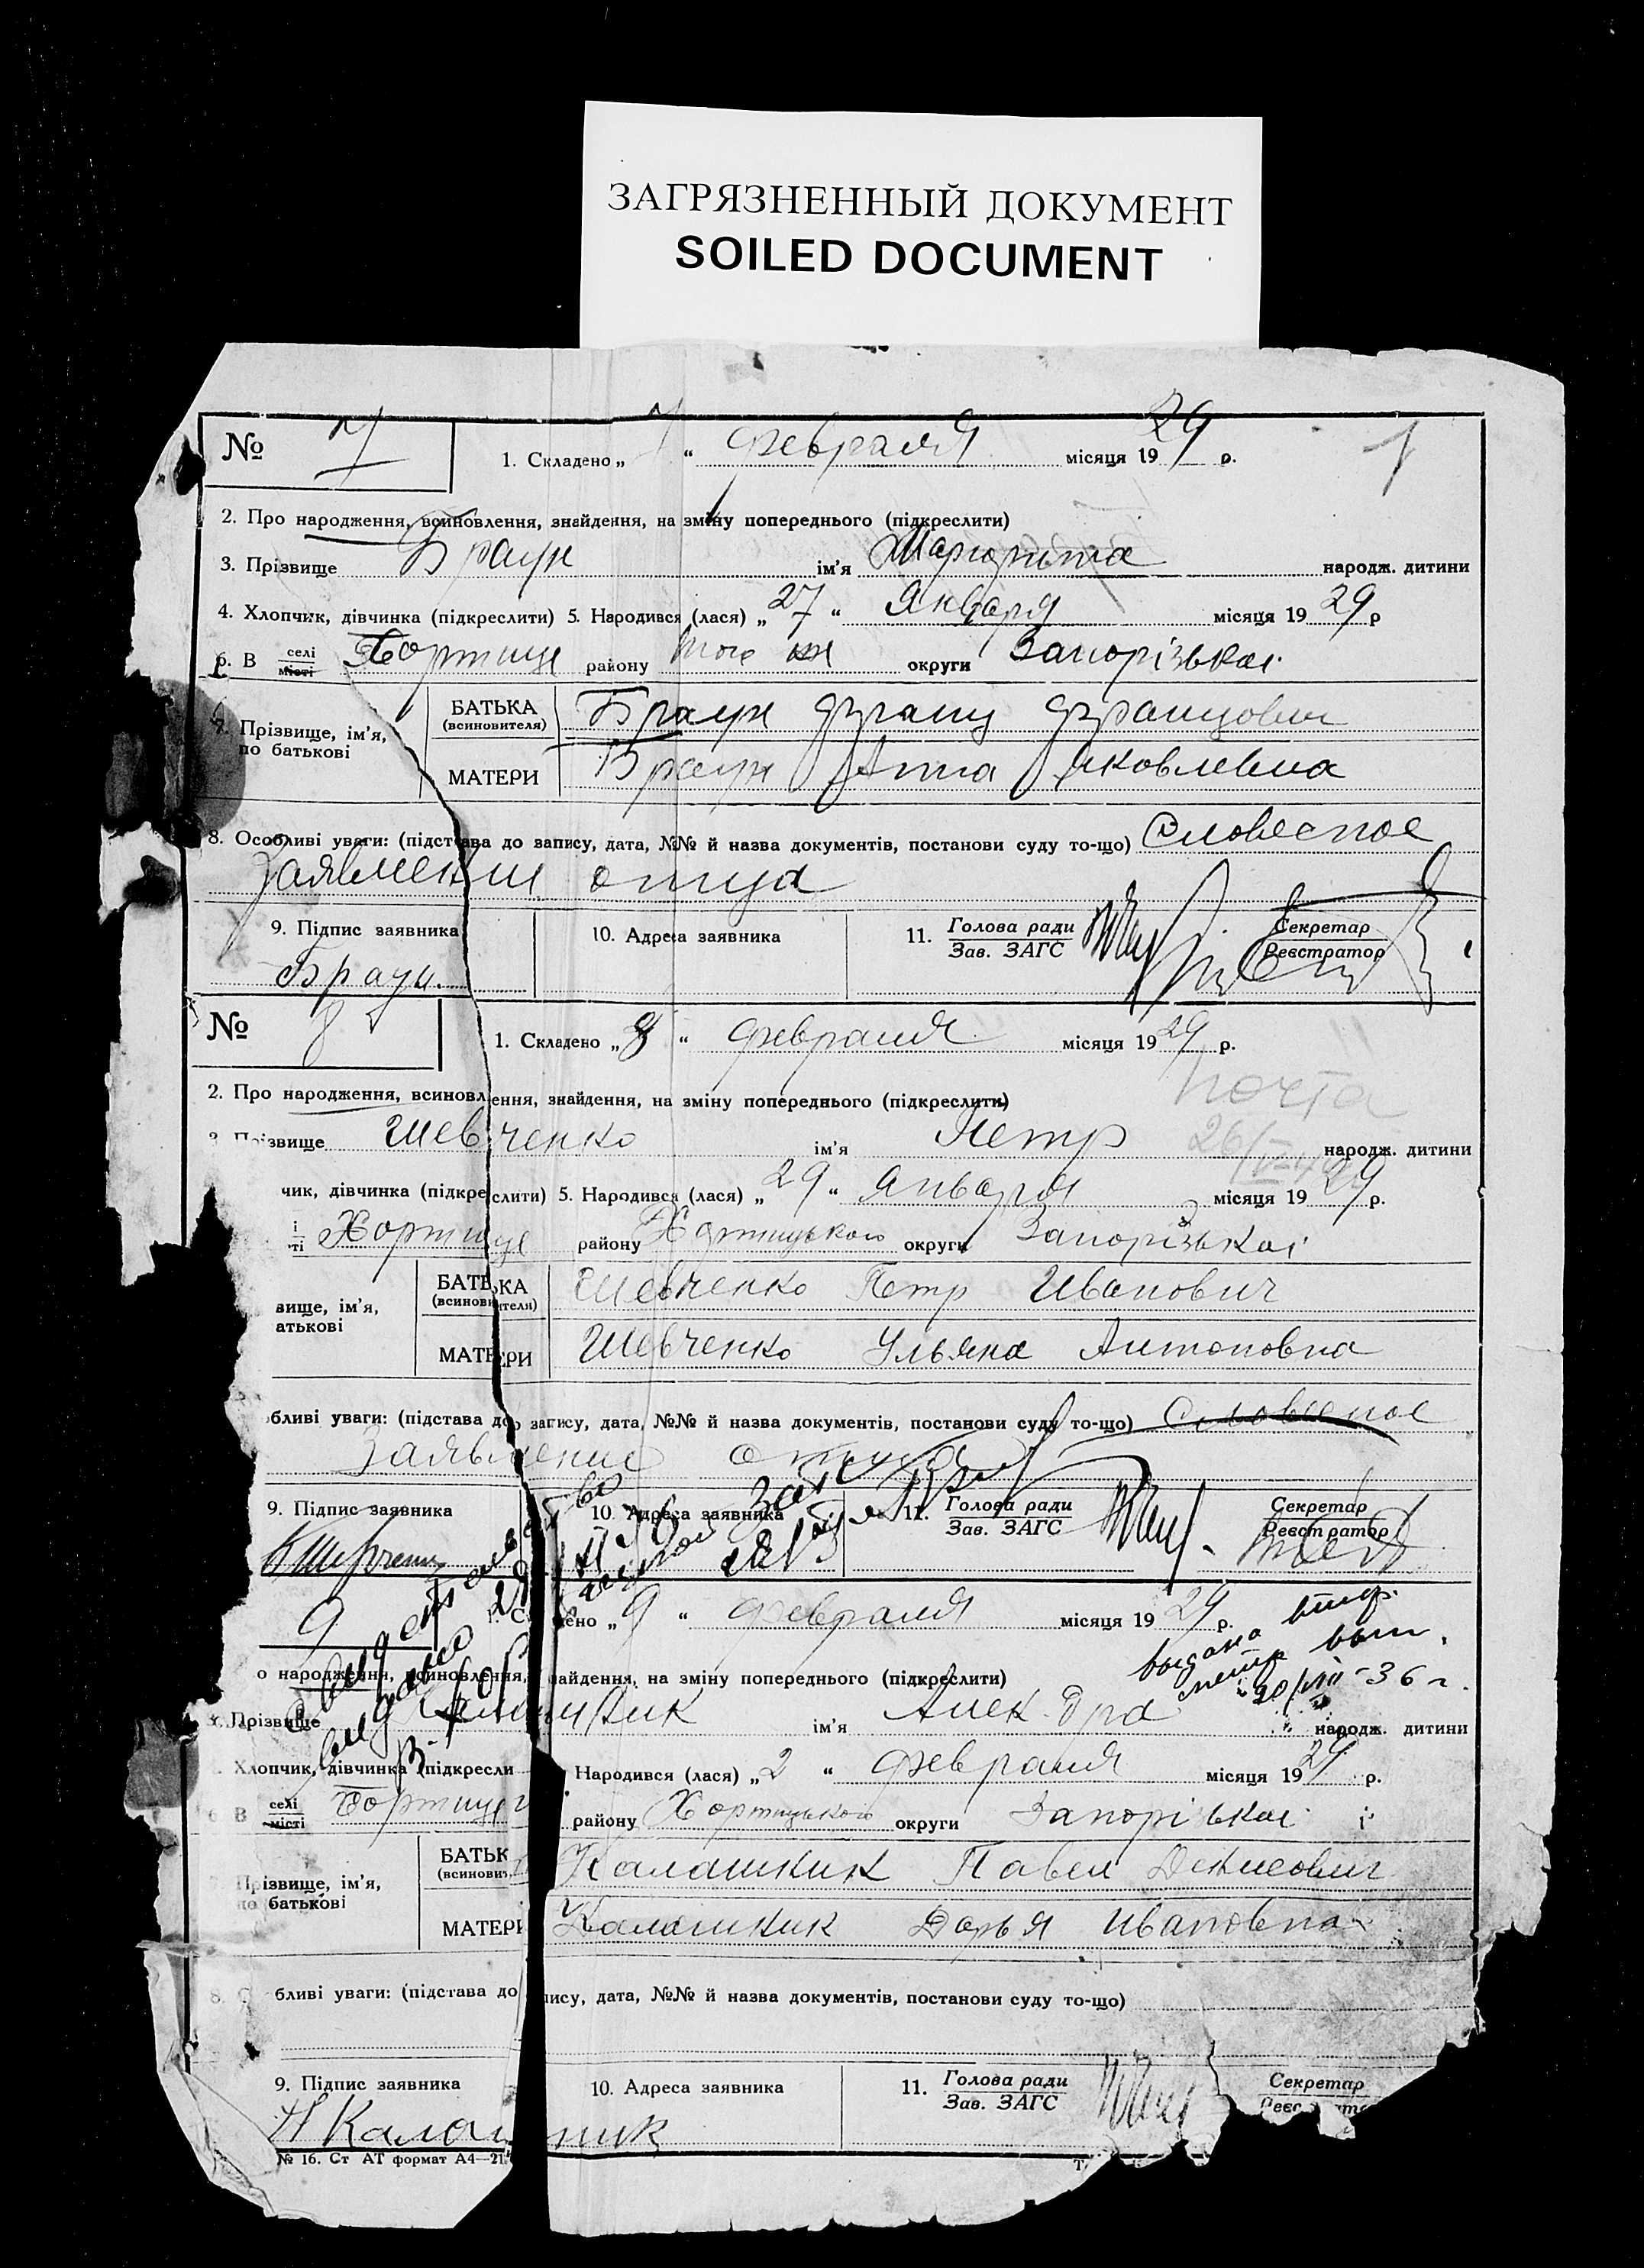 ЗАГРЯЗНЕННЫЙ ДОКУМЕНТ
SOILED DOCUMENT
№ 7 1. Складено „ 7 “ февраля місяця 1929 р. 1
2. Про народження, всиновлення, знайдення, на зміну попереднього (підкреслити)
3. Прізвище Браун ім’я Маргорита народж. дитини
4. Хлопчик, дівчинка (підкреслити) 5. Народився (лася) „ 27 “ Января місяця 19 29 р
6. В селі місті Хортице району того же округи Запорізькаі
7. Прізвище, ім’я, по батькові
БАТЬКА (всиновителя) Браун Франц Францович
МАТЕРИ Браун Анна Яковлевна
8. Особливі уваги: (підстава до запису, дата, №№ й назва документів, постанови суду то-що) Словесное
Заявление отца
9. Підпис заявника 10. Адреса заявника 11. Голова ради Зав. ЗАГС Секретар Реєстратор
Браун.
№ 8 1. Складено „ 8 “ февраля місяця 19 29 р.
почта
2. Про народження, всиновлення, знайдення, на зміну попереднього (підкреслити)
звище Шевченко ім’я Петр народж. дитини
26/
чик, дівчинка (підкреслити) 5. Народився (лася) „ 29 “ Января місяця 19 29 р.
і ті Хортице району Хортицького округи Запорізькаі
вище, ім’я, атькові
БАТЬКА (всиновителя) Шевченко Петр Иванович
МАТЕРИ Шевченко Ульяна Антоновна
бливі уваги: (підстава до запису, дата, №№ й назва документів, постанови суду то-що) Словесное
Заявление отца
9. Підпис заявника 10. Адреса заявника 11. Голова ради Зав. ЗАГС Секретар Реєстратор
9 ено „ 9 “ февраля місяця 19 29 р.
выдана
о народження, всиновлення, найдення, на зміну попереднього (підкреслити)
20/VIII-36 г.
Прізвище Калашник ім’я Алек-дра народж. дитини
Хлопчик, дівчинка (підкресли Народився (лася) „ 2 “ февраля місяця 19 29 р.
6. В селі місті Хортице району Хортицького округи Запорізькаі
Прізвище, ім’я, по батькові
БАТЬК (всинови Калашник Павел Денисович
МАТЕРИ Калашник Дарья Ивановна
8. бливі уваги: (підстава до пису, дата, №№ й назва документів, постанови суду то-що)
9. Підпис заявника 10. Адреса заявника 11. Голова ради Зав. ЗАГС Секретар
Калашник
№ 16. Ст АТ формат А4—21